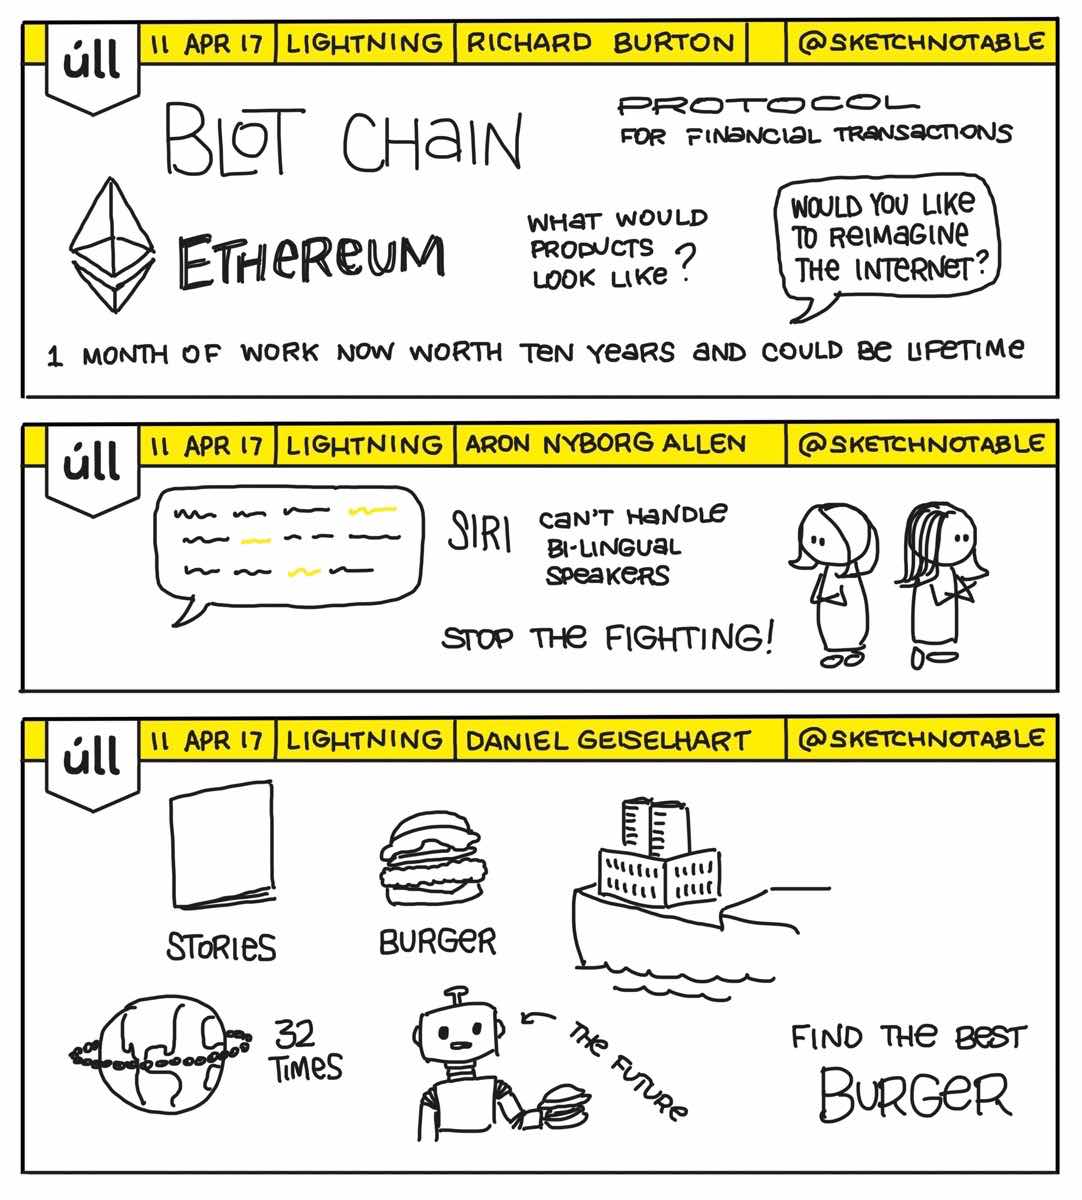 úll
11 APR 17 LIGHTNING RICHARD BURTON @SKETCHNOTABLE
BLOT CHAIN
PROTOCOL
FOR FINANCIAL TRANSACTIONS
ETHEREUM
WHAT WOULD
PRODUCTS
LOOK LIKE ?
WOULD YOU LIKE
TO REIMAGINE
THE INTERNET?
1 MONTH OF WORK NOW WORTH TEN YEARS AND COULD BE LIFETIME
úll
11 APR 17 LIGHTNING ARON NYBORG ALLEN @SKETCHNOTABLE
SIRI CAN'T HANDLE
BI-LINGUAL
SPEAKERS
STOP THE FIGHTING!
úll
11 APR 17 LIGHTNING DANIEL GEISELHART @SKETCHNOTABLE
STORIES
BURGER
32
TIMES
THE FUTURE
FIND THE BEST
BURGER